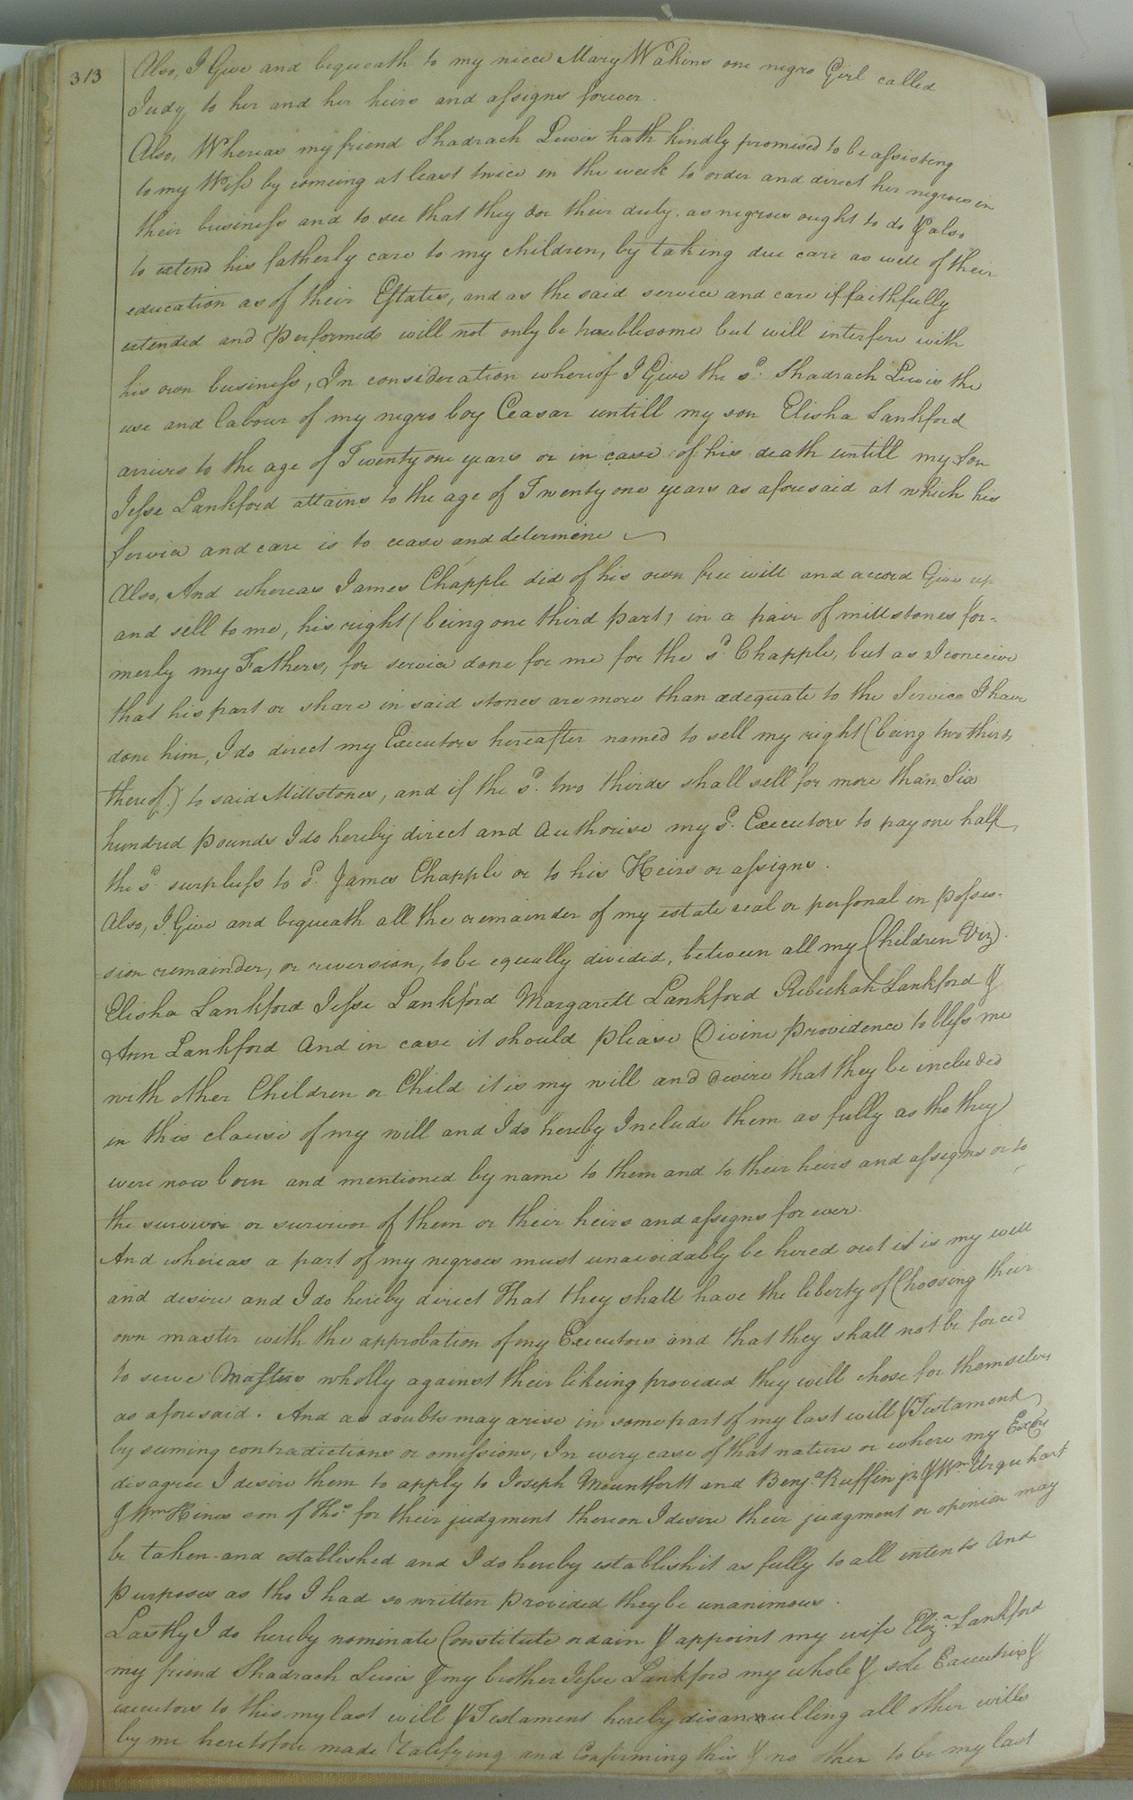 313
Also, I Give and bequeath to my niece Mary Watkins one negro Girl called
Judy to her and her heirs and assigns forever.
Also, Whereas my friend Shadrach Lewis hath kindly promised to be assisting
to my Wife by comeing at least twice in the week to order and direct her negroes in
their business and to see that they doe their duty as negroes ought to do & also
to extend his fatherly care to my children, by taking due care as well of their
education as of their Estates, and as the said service and care if faithfully
extended and performed will not only be troublesome but will interfere with
his own business, In consideration whereof I Give the sd. Shadrach Lewis the
use and labour of my negro boy Ceasar untill my son Elisha Lankford
arrives to the age of Twenty one years or in case of his death untill my Son
Jesse Lankford attains to the age of Twenty one years as aforesaid at which his
Service and care is to cease and determine
Also, And whereas James Chapple did of his own free will and accord Give up
and sell to me, his right (being one third part) in a pair of millstones for-
merly my Fathers, for service done for me for the sd. Chapple, but as I conceive
that his part or share in said stones are more than adequate to the Service I have
done him, I do direct my Executors hereafter named to sell my right (being two thirds
thereof) to said Millstones, and if the sd. two thirds shall sell for more than Six
hundred pounds I do hereby direct and authorise my sd. Executors to pay one half
the sd. surpluss to sd. James Chapple or to his Heirs or assigns.
Also, I Give and bequeath all the remainder of my estate real or personal in posses-
sion remainder, or reversion, to be equally divided, between all my Children Viz)
Elisha Lankford Jesse Lankford Margarett Lankford Rebeckah Lankford &
Ann Lankford And in case it should please Divine providence to bless me
with other Children or Child it is my will and desire that they be included
in this clause of my will and I do hereby Include them as fully as tho they
were now born and mentioned by name to them and to their heirs and assigns or to
the survivor or survivor of them or their heirs and assigns for ever.
And whereas a part of my negroes must unavoidably be hired out it is my will
and desire and I do hereby direct That they shall have the liberty of Choosing their
own master with the approbation of my Executors and that they shall not be forced
to serve Masters wholly against their likeing provided they will chose for themselves
as aforesaid. And as doubts may arise in some part of my last will & Testament
by seming contradictions or omissions, In every case of that nature or where my Exors
disagree I desire them to apply to Joseph Mountfortt and Benja Ruffin jr & Wm Urquhart
& Wm Hines son of Thos. for their judgment thereon I desire their judgment or opinion may
be taken and established and I do hereby establish it as fully to all intents and
purposes as tho I had so written provided they be unanimous.
Lastly I do hereby nominate Constitute ordain & appoint my wife Eliza. Lankford
my friend Shadrach Lewis & my brother Jesse Lankford my whole & sole Executrix &
executors to this my last will & Testament hereby disannulling all other wills
by me heretofore made Ratifying and Confirming this & no other to be my last